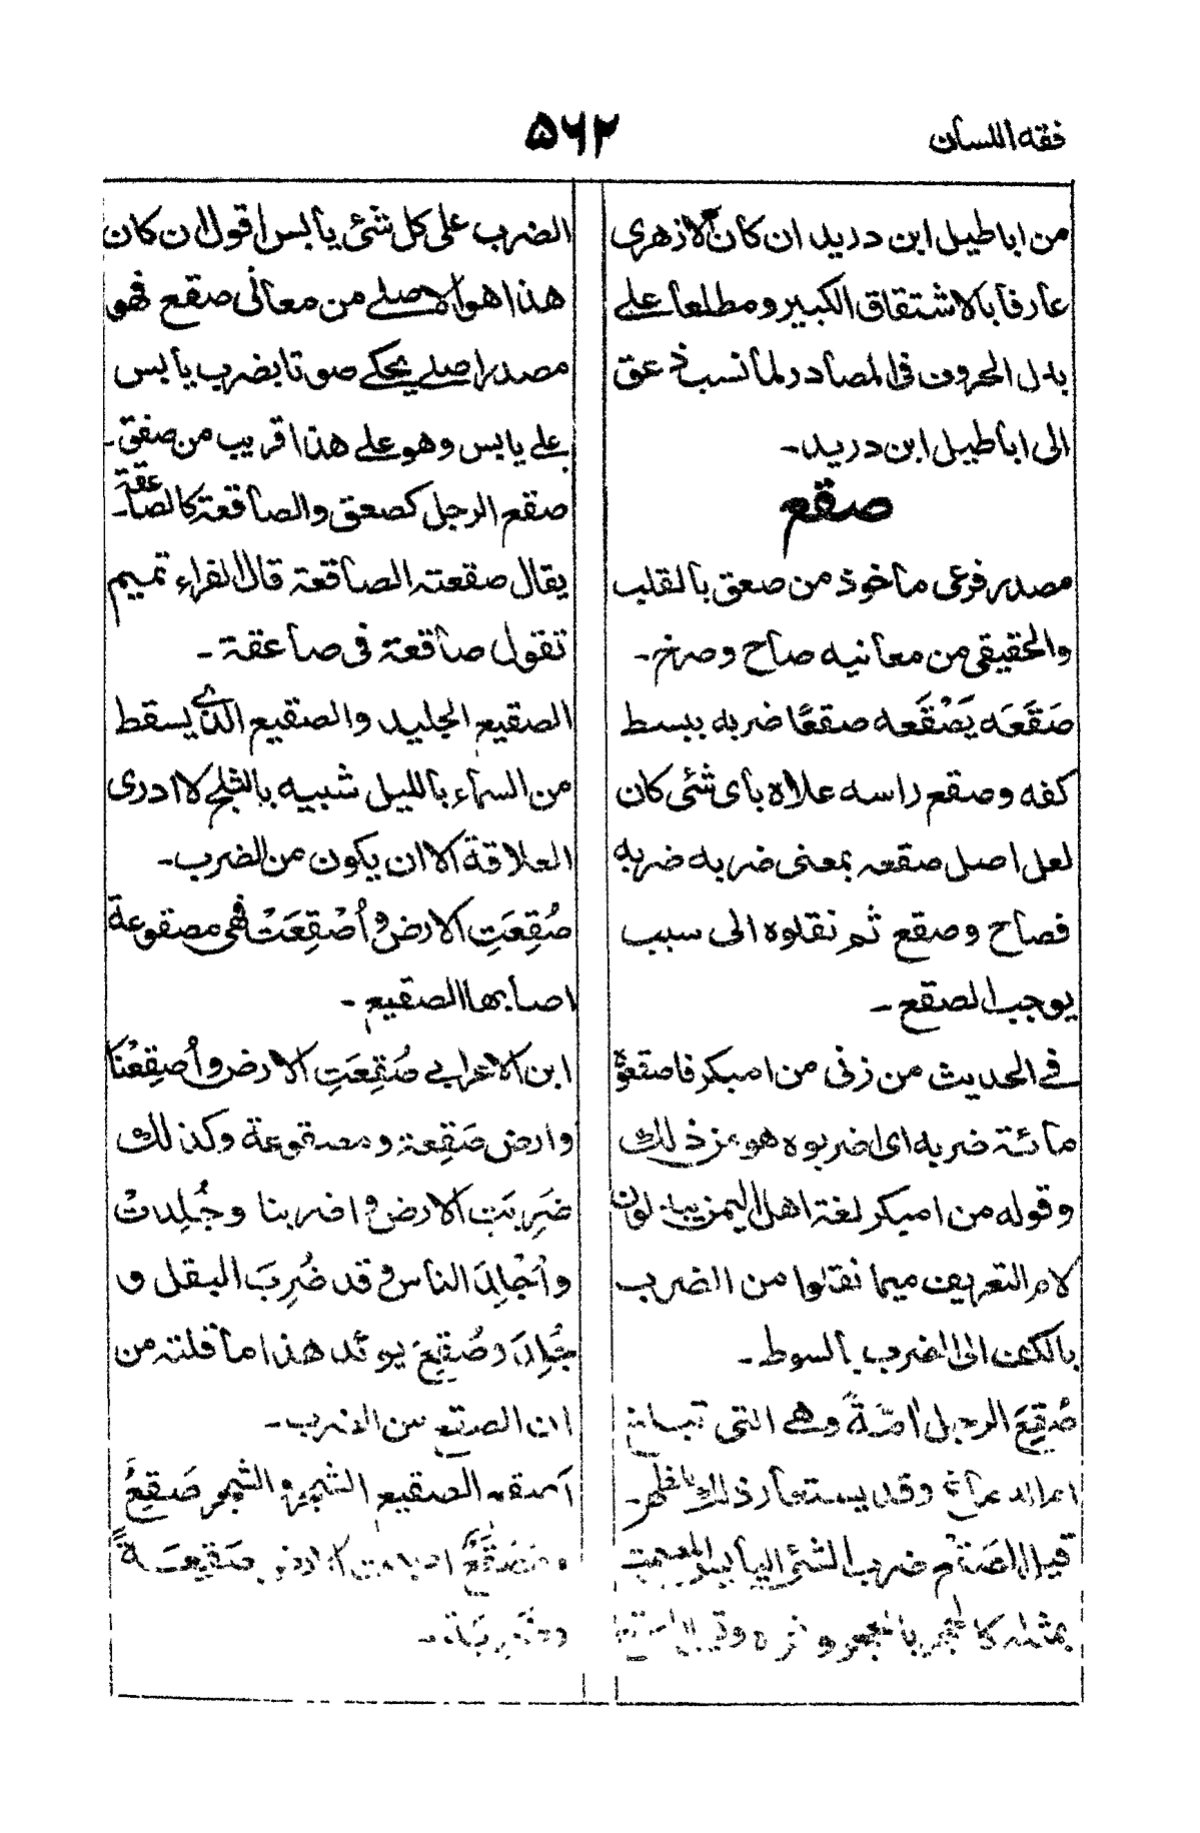 فقه اللسان
۵۶۲
من اباطيل ابن دريد ان كان الازهرى
عارفا بالاشتقاق الكبير ومطلعا على
بدل الحروف فى المصادر لما نسب ذعق
الى اباطيل ابن دريد۔
صقع
مصدر فرعى ماخوذ من صعق بالقلب
والحقيقى من معانيه صاح وصرخ۔
صَقَعَه يَصْقَعه صقعًا ضربه ببسط
كفه وصقع راسه علاه باى شئى كان
لعل اصل صقعه بمعنى ضربه ضربه
فصاح وصقع ثم نقلوه الى سبب
يوجب الصقع۔
فى الحديث من زنى من امبكر فاصقعوه
مائة ضربه اى اضربوه هو من ذلك
وقوله من امبكر لغة اهل اليمن يبدلون
لام التعريف ميما نقلوا من الضرب
بالكف الى الضرب بالسوط۔
صُقِعَ الرجل اٰمّةً وهى التى تبلغ
ام الدماغ وقد يستعار ذلك للظهر۔
قيل الصقع ضرب الشئى اليابس المصمت
بمثله كالحجر بالحجر و نحوه وقيل الصقع
الضرب على كل شئى يابس اقول ان كان
هذا هو الاصلى من معانى صقع فهو
مصدر اصلى يحكى صوتا بضرب يابس
على يابس وهو على هذا قريب من صفق۔
صقع الرجل كصعق والصاقعة كالصاعقة۔
يقال صقعته الصاقعة قال الفراء تميم
تقول صاقعة فى صاعقة۔
الصقيع الجليد والصقيع الذى يسقط
من السماء بالليل شبيه بالثلج لا ادرى
العلاقة الا ان يكون من الضرب۔
صُقِعَتِ الارض وأُصْقِعَتْ فهى مصقوعة
اصابها الصقيع۔
ابن الاعرابى صُقِعَتِ الارض وأُصقِعْنَا
وارض صَقِعة ومصقوعة وكذلك
ضَرِبَتِ الارض واضربنا وجُلِدتْ
وأُجْلِدَ الناس وقد ضُرِبَ البقل و
جُلِدَ وصُقِعَ يوئد هذا ما قلته من
ان الصقع من الضرب۔
اَصقع الصقيع الشجر والشجر صَقِعٌ
ومُصْقَعٌ اصبحت الارض صَقِيعَةً
وضَرِبَة۔